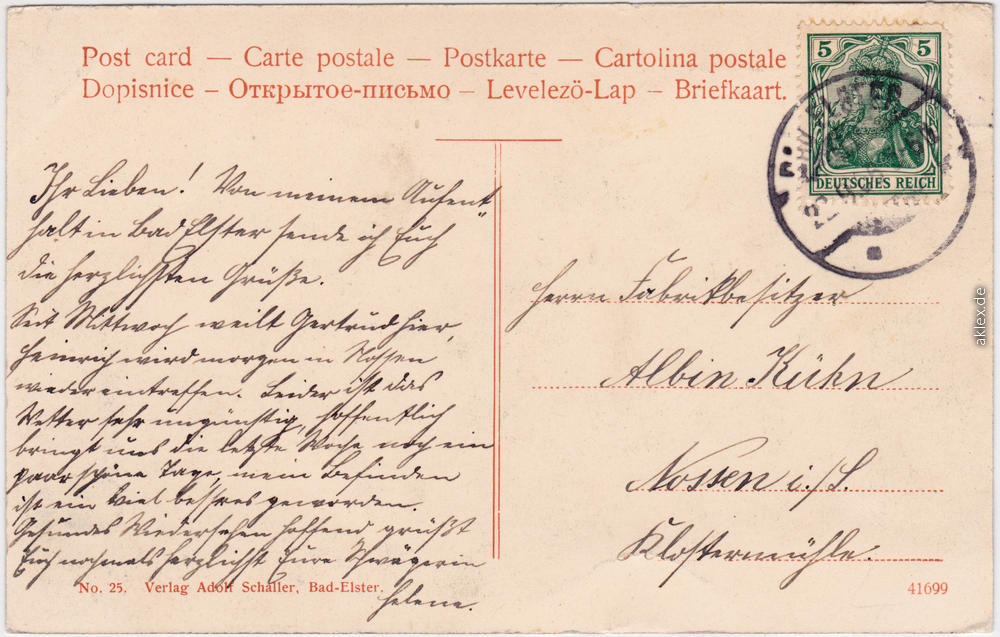 Post card — Carte postale — Postkarte — Cartolina postale
Dopisnice — Открытое-письмо — Levelező-Lap — Briefkaart.
5 5
DEUTSCHES REICH
BAD ELSTER
Ihr Lieben! Von meinem Aufent-
halt in Bad Elster sende ich Euch
die herzlichsten Grüße.
Seit Mittwoch weilt Gertrud hier,
Heinrich wird morgen in Nossen
wieder eintreffen. Leider ist das
Wetter sehr ungünstig, hoffentlich
bringt uns die letzte Woche noch ein
paar schöne Tage, mein Befinden
ist ein viel besseres geworden.
Gesundes Wiedersehen hoffend grüßt
Euch nochmals herzlichst Eure Schwägerin
Helene.
Herrn Fabrikbesitzer
Albin Kühn
Nossen i./S.
Klostermühle.
No. 25. Verlag Adolf Schaller, Bad-Elster.
41699
aklex.de